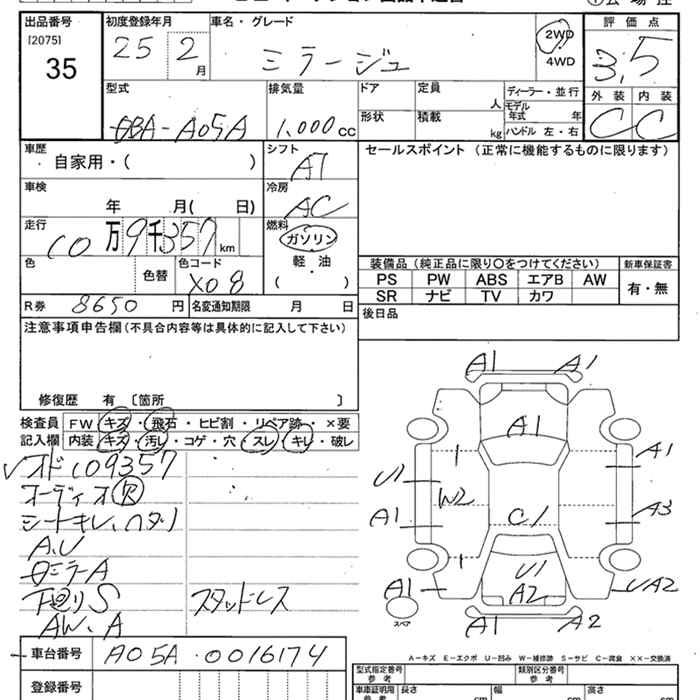 出品番号 初度登録年月 車名・グレード 評価点
[2075]
35
25 2月 ミラージュ 2WD 3.5
4WD
外装 内装
C C
型式 排気量 ドア 定員 人 ディーラー・並行
DBA-A05A 1,000cc 形状 積載 kg モデル年式 年
ハンドル 左・右
車歴 シフト セールスポイント (正常に機能するものに限ります)
自家用・( ) AT
車検 冷房
年 月( 日) AC
走行 燃料
10万9千357km ガソリン
軽・油
( )
色 色替 色コード
X08
装備品(純正品に限り○をつけてください) 新車保証書
PS PW ABS エアB AW 有・無
SR ナビ TV カワ
R券 8650円 名変通知期限 月 日 後日品
注意事項申告欄(不具合内容等は具体的に記入して下さい)
修復歴 有 〔箇所 〕
検査員 FW キズ・飛石・ヒビ割・リペア跡・×要
記入欄 内装 キズ・汚レ・コゲ・穴・スレ・キレ・破レ
オド109357
オーディオ欠
シートキレ、ヘタリ
A.U
ミラーA
下廻りS スタッドレス
AW、A
A1 A1
A1
U1 A1
W2
A1 A3
C1
U1
A2
A1 UA2
スペア
A1 A2
A-キズ E-エクボ U-凹み W-補修跡 S-サビ C-腐食 ××-交換済
車台番号 A05A-0016174
登録番号
型式指定番号 参考 類別区分番号 参考
車庫証明用 参考 長さ cm 幅 cm 高さ cm